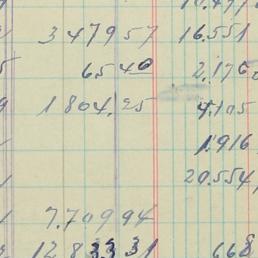 3479 57 16.551
65 40 2.176
1804.25 4.105
1.916
20.554
7.709 94
12.833 31 668